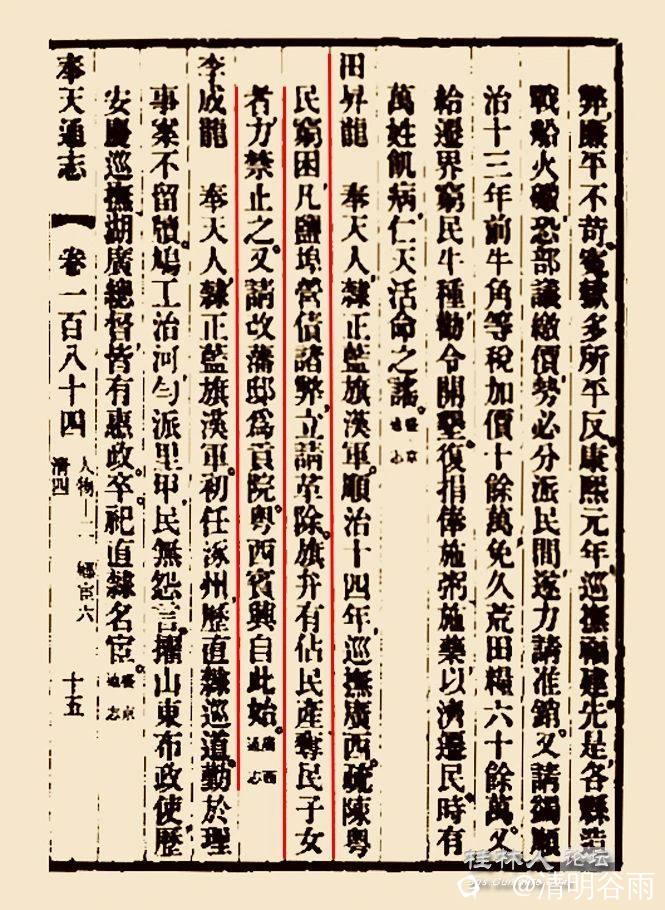 弊廉平不苛冤獄多所平反康熙元年巡撫福建先是各縣造
戰船火礮恐部議繳價勢必分派民間遂力請准銷又請蠲順
治十三年前牛角等稅加價十餘萬免久荒田糧六十餘萬又
給遷界窮民牛種勸令開墾復捐俸施粥施藥以濟遷民時有
萬姓飢病仁天活命之謠盛京通志
田昇龍　奉天人隸正藍旗漢軍順治十四年巡撫廣西疏陳粵
民窮困凡鹽埠營債諸弊立請革除旗弁有佔民產奪民子女
者力禁止之又請改藩邸爲貢院粵西賓興自此始廣西通志
李成龍　奉天人隸正藍旗漢軍初任涿州歷直隸巡道勤於理
事案不留牘鳩工治河勻派里甲民無怨言擢山東布政使歷
安慶巡撫湖廣總督皆有惠政卒祀直隸名宦盛京通志
奉天通志　卷一百八十四　人物十二　鄉宦六　清四　十五
桂林人论坛
@清明谷雨